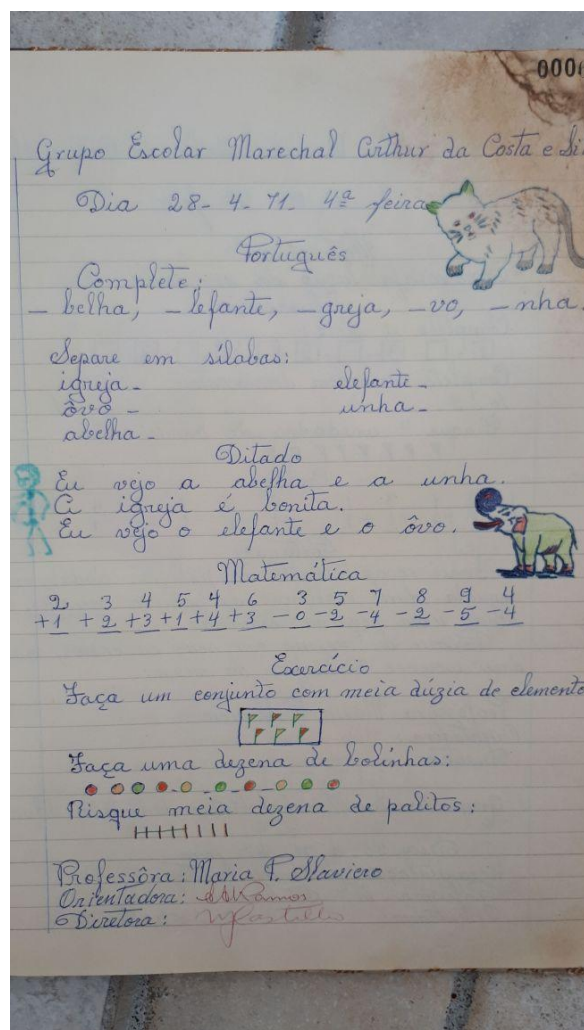 000
Grupo Escolar Marechal Arthur da Costa e
Dia 28-4-71. 4ª feira
Português
Complete:
_belha, _lefante, _greja, _vo, _nha.
Separe em sílabas:
igreja - elefante -
ôvo - unha -
abelha -
Ditado
Eu vejo a abelha e a unha.
A igreja é bonita.
Eu vejo o elefante e o ôvo.
Matemática
2 3 4 5 4 6 3 5 7 8 9 4
+1 +2 +3 +1 +4 +3 -0 -2 -4 -2 -5 -4
Exercício
Faça um conjunto com meia dúzia de elemento
Faça uma dezena de bolinhas:
Risque meia dezena de palitos:
Professôra: Maria F. Slaviero
Orientadora: Ramos
Diretora: